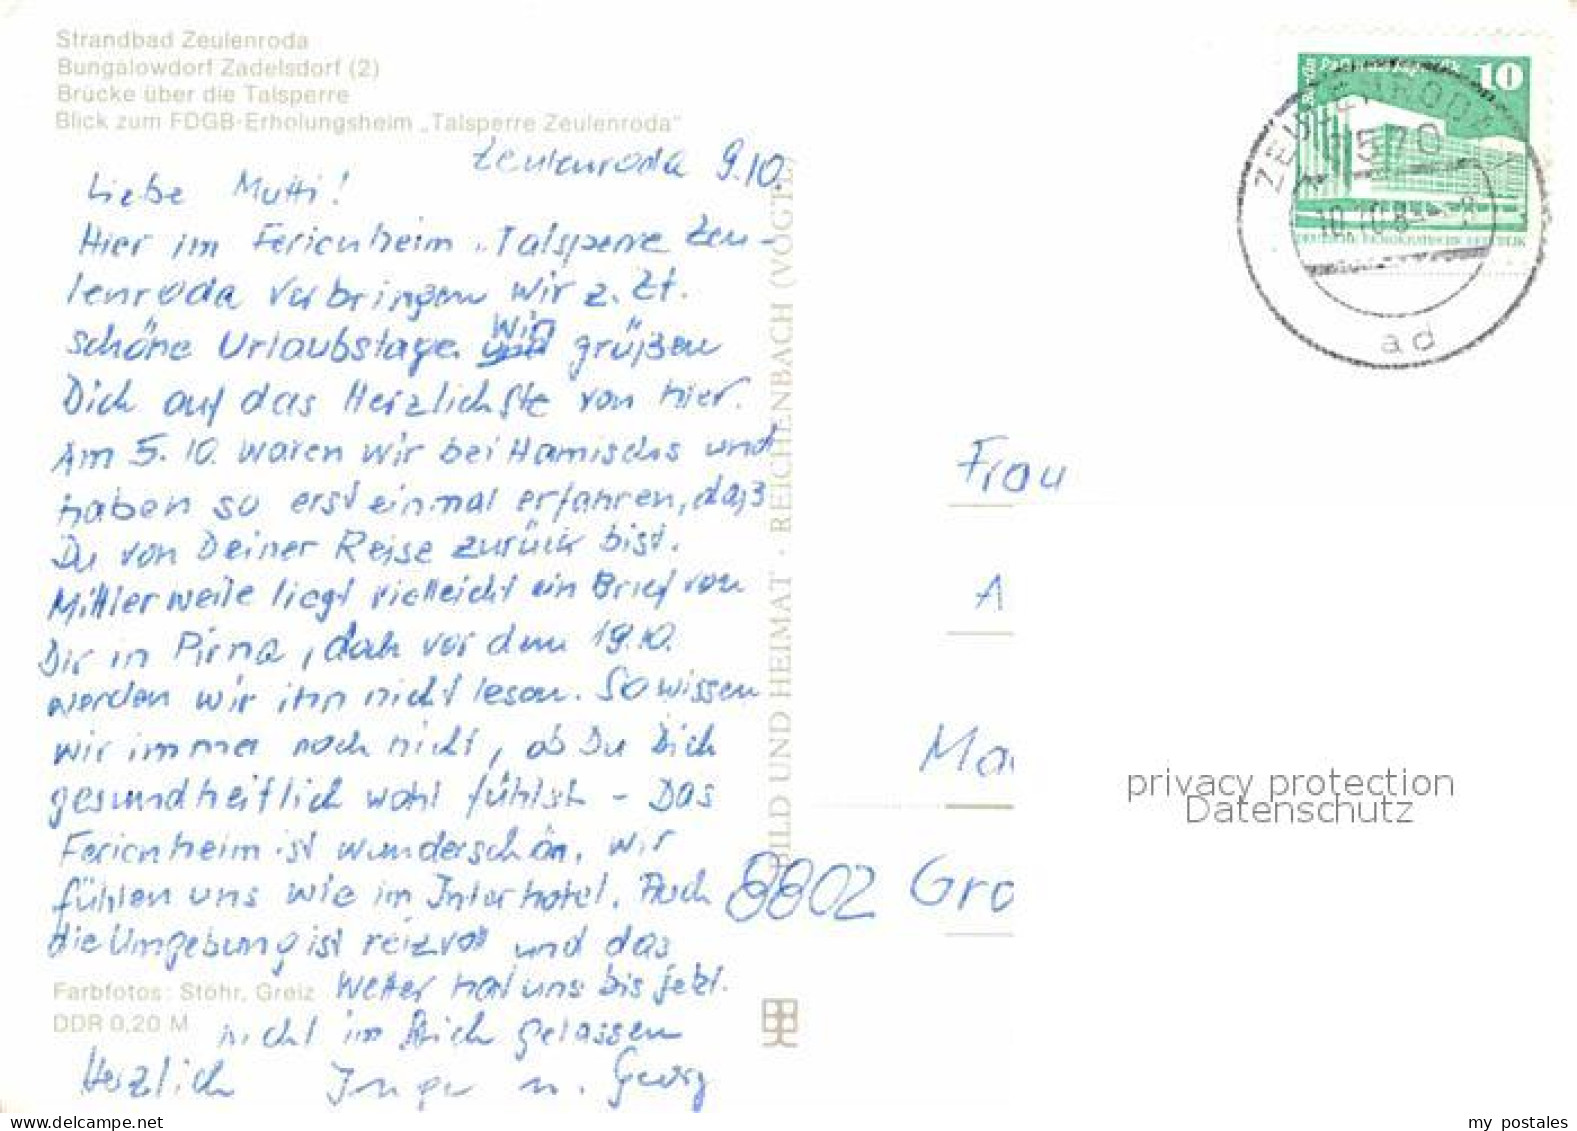 Strandbad Zeulenroda
Bungalowdorf Zadelsdorf (2)
Brücke über die Talsperre
Blick zum FDGB-Erholungsheim „Talsperre Zeulenroda"
Zeulenroda 9.10.
Liebe Mutti!
Hier im Ferienheim „Talsperre Zeu-
lenroda verbringen wir z. Zt.
schöne Urlaubstage. Wir grüßen
Dich auf das Herzlichste von hier.
Am 5.10. waren wir bei Hamischs und
haben so erst einmal erfahren, daß
Du von Deiner Reise zurück bist.
Mittlerweile liegt vielleicht ein Brief von
Dir in Pirna, doch vor dem 19.10.
werden wir ihn nicht lesen. So wissen
wir immer noch nicht, ob Du Dich
gesundheitlich wohl fühlst - Das
Ferienheim ist wunderschön, wir
fühlen uns wie im Interhotel. Auch
die Umgebung ist reizvoll und das
Wetter hat uns bis jetzt.
nicht im Stich gelassen
Herzlich Inge u. Georg
Farbfotos: Stöhr, Greiz
DDR 0,20 M
BILD UND HEIMAT · REICHENBACH (VOGTL)
10
DEUTSCHE DEMOKRATISCHE REPUBLIK
ZEULENRODA
6570
10.10.8
ad
Frau
A
Ma
8802 Gro
privacy protection
Datenschutz
my postales